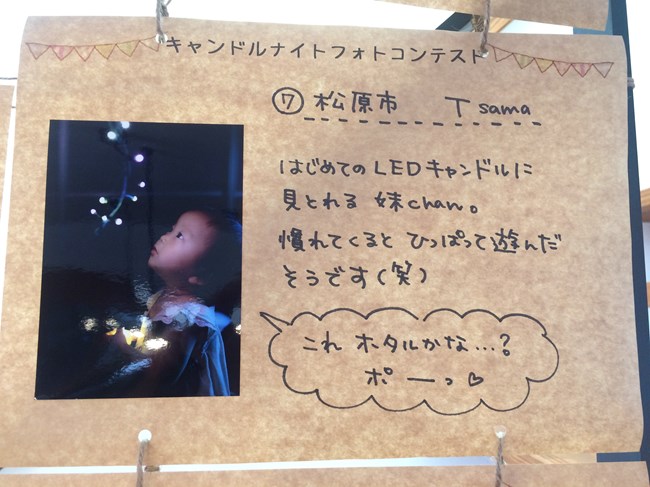 キャンドルナイトフォトコンテスト
⑦ 松原市 T sama
はじめてのLEDキャンドルに
見とれる 妹chan。
慣れてくると ひっぱって遊んだ
そうです(笑)
これ ホタルかな…?
ポーっ♡